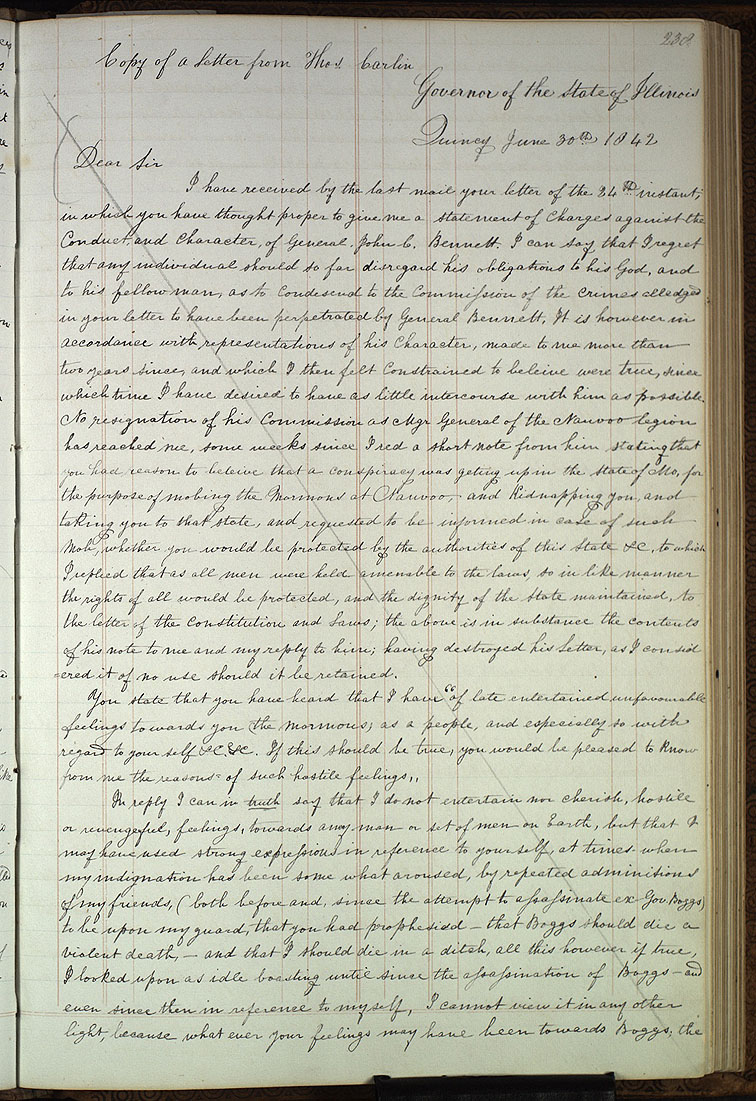 238
Copy of a Letter from Thos. Carlin
Governor of the State of Illinois
Quincy June 30th 1842
Dear Sir
I have received by the last mail your letter of the 24th instant,
in which you have thought proper to give me a statement of Charges against the
Conduct, and Character, of General, John C. Bennett. I can say that I regret
that any individual should so far disregard his obligations to his God, and
to his fellow man, as to Condescend to the Commission of the crimes alledged
in your letter to have been perpetrated by General Bennett, It is however in
accordance with, representations of his Character, made to me more than
two years since, and which I then felt Constrained to beleive were true, since
which time I have desired to have as little intercourse with him as possible.
No resignation of his Commission as Mgr General of the Nauvoo legion
has reached me, some weeks since I red a short note from him, stating that
you had reason to beleive that a conspiracy was geting up in the State of Mo, for
the purpose of mobing the Mormons at Nauvoo, and Kidnapping you, and
taking you to that state, and requested to be informed in case of such
Mob, whether you would be protected by the authorities of this State &C, to which
I replied that as all men were held amenable to the laws, so in like manner
the rights of all would be protected, and the dignity of the State maintained, to
the letter of the Constitution and Laws; the above is in substance the contents
of his note to me and my reply to him; having destroyed his Letter, as I consid
=ered it of no use should it be retained.
You state that you have heard that I have "of late entertained unfavourable
feelings towards you (the Mormons) as a people, and especially so with
regard to your self &C &C. If this should be true, you would be pleased to Know
from me the reasons of such hostile feelings,,
In reply I can in truth say that I do not entertain nor cherish, hostile
or revengeful, feelings, towards any man or set of men on Earth, but that I
may have used strong expressions in reference to yourself, at times when
my indignation has been some what aroused, by repeated adminisions
of my friends, (both before and, since the attempt to assassinate ex Gov. Boggs)
to be upon my guard, that you had prophesied – that Boggs should die a
violent death, – and that I should die in a ditch, all this however if true,
I looked upon as idle boasting until since the assassination of Boggs – and
even since then in reference to myself, I cannot view it in any other
light, because what ever your feelings may have been towards Boggs, the